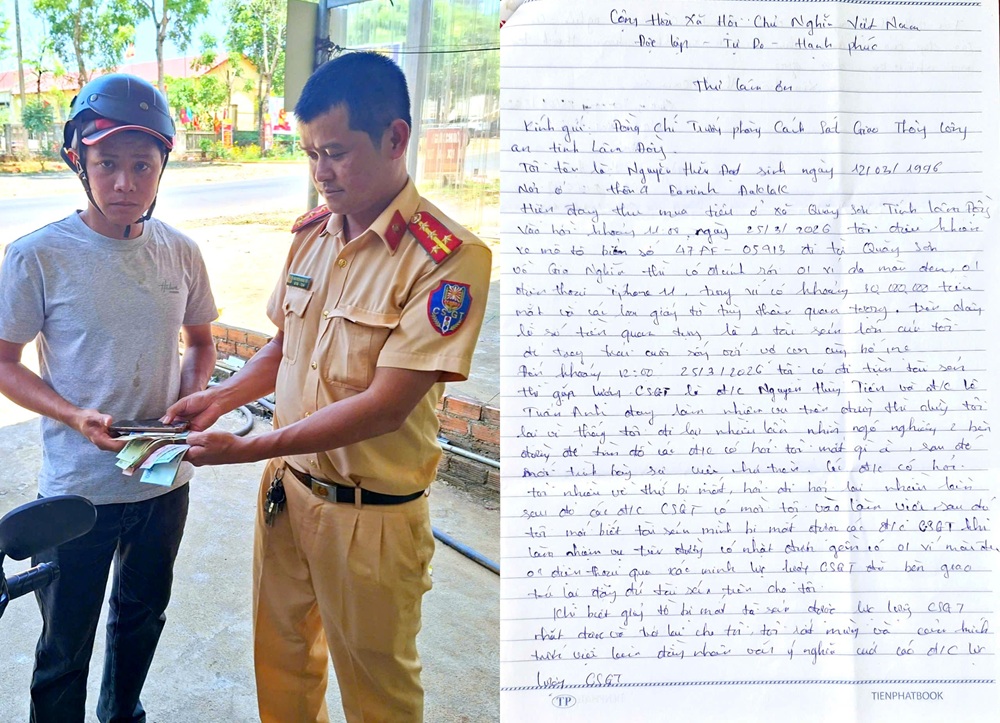 CSGT
Cộng Hòa Xã Hội Chủ Nghĩa Việt Nam
Độc lập - Tự Do - Hạnh phúc
Thư cảm ơn
Kính gửi: Đồng Chí Trưởng phòng Cảnh Sát Giao Thông Công
an tỉnh Lâm Đồng.
Tôi tên là Nguyễn Hữu sinh ngày 12/03/1996
Nơi ở thôn 9 Eaninh ĐakLak
Hiện đang thu mua tiêu ở xã Quảng Sơn Tỉnh Lâm Đồng
Vào hồi khoảng 11:00 ngày 25/3/2026 tôi điều khiển
xe mô tô biển số 47 - 05913 đi từ Quảng Sơn
về Gia Nghĩa thì có đánh rơi 01 ví da màu đen, 01
điện thoại iphone 11, trong ví có khoảng 10,000,000 tiền
mặt và các loại giấy tờ tùy thân quan trọng. trên đây
là số tiền quan trọng là 1 tài sản lớn của tôi
để trang trải cuộc sống với vợ con cùng bố mẹ
Đến khoảng 12:00 25/3/2026 tôi có đi tìm tài sản
thì gặp lượng CSGT là đ/c Nguyễn Thủy Tiến và đ/c Lê
Tuấn Anh đang làm nhiệm vụ trên đường thì dừng tôi
lại vì thấy tôi đi lại nhiều lần nhìn ngó nghiêng 2 bên
đường để tìm đồ các đ/c có hỏi tôi mất gì à, sau đó
mới trình bày sự việc như trên. Các đ/c có hỏi
tôi nhiều về thứ bị mất, hỏi đi hỏi lại nhiều lần
sau đó các đ/c CSGT có mời tôi vào làm việc sau đó
tôi mới biết tài sản mình bị mất được các đ/c CSGT khi
làm nhiệm vụ trên đường có nhặt được gồm có 01 ví màu đen
01 điện thoại qua xác minh lực lượng CSGT đã bàn giao
trả lại đầy đủ tài sản trên cho tôi.
Khi biết giấy tờ bị mất tài sản được lực lượng CSGT
nhặt được và trả lại cho tôi, tôi rất mừng và
trước việc làm đầy nhân văn ý nghĩa của các đ/c lực
lượng CSGT
TP
TIENPHATBOOK